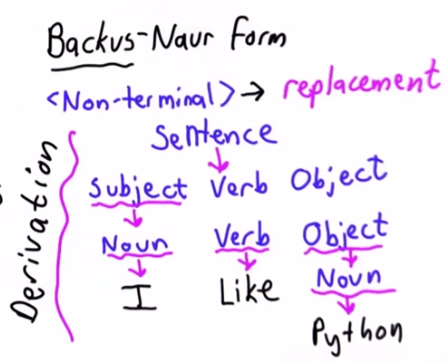 Backus-Naur Form
<Non-terminal> → replacement
Derivation
Sentence
Subject Verb Object
Noun Verb Object
I Like Noun
Python